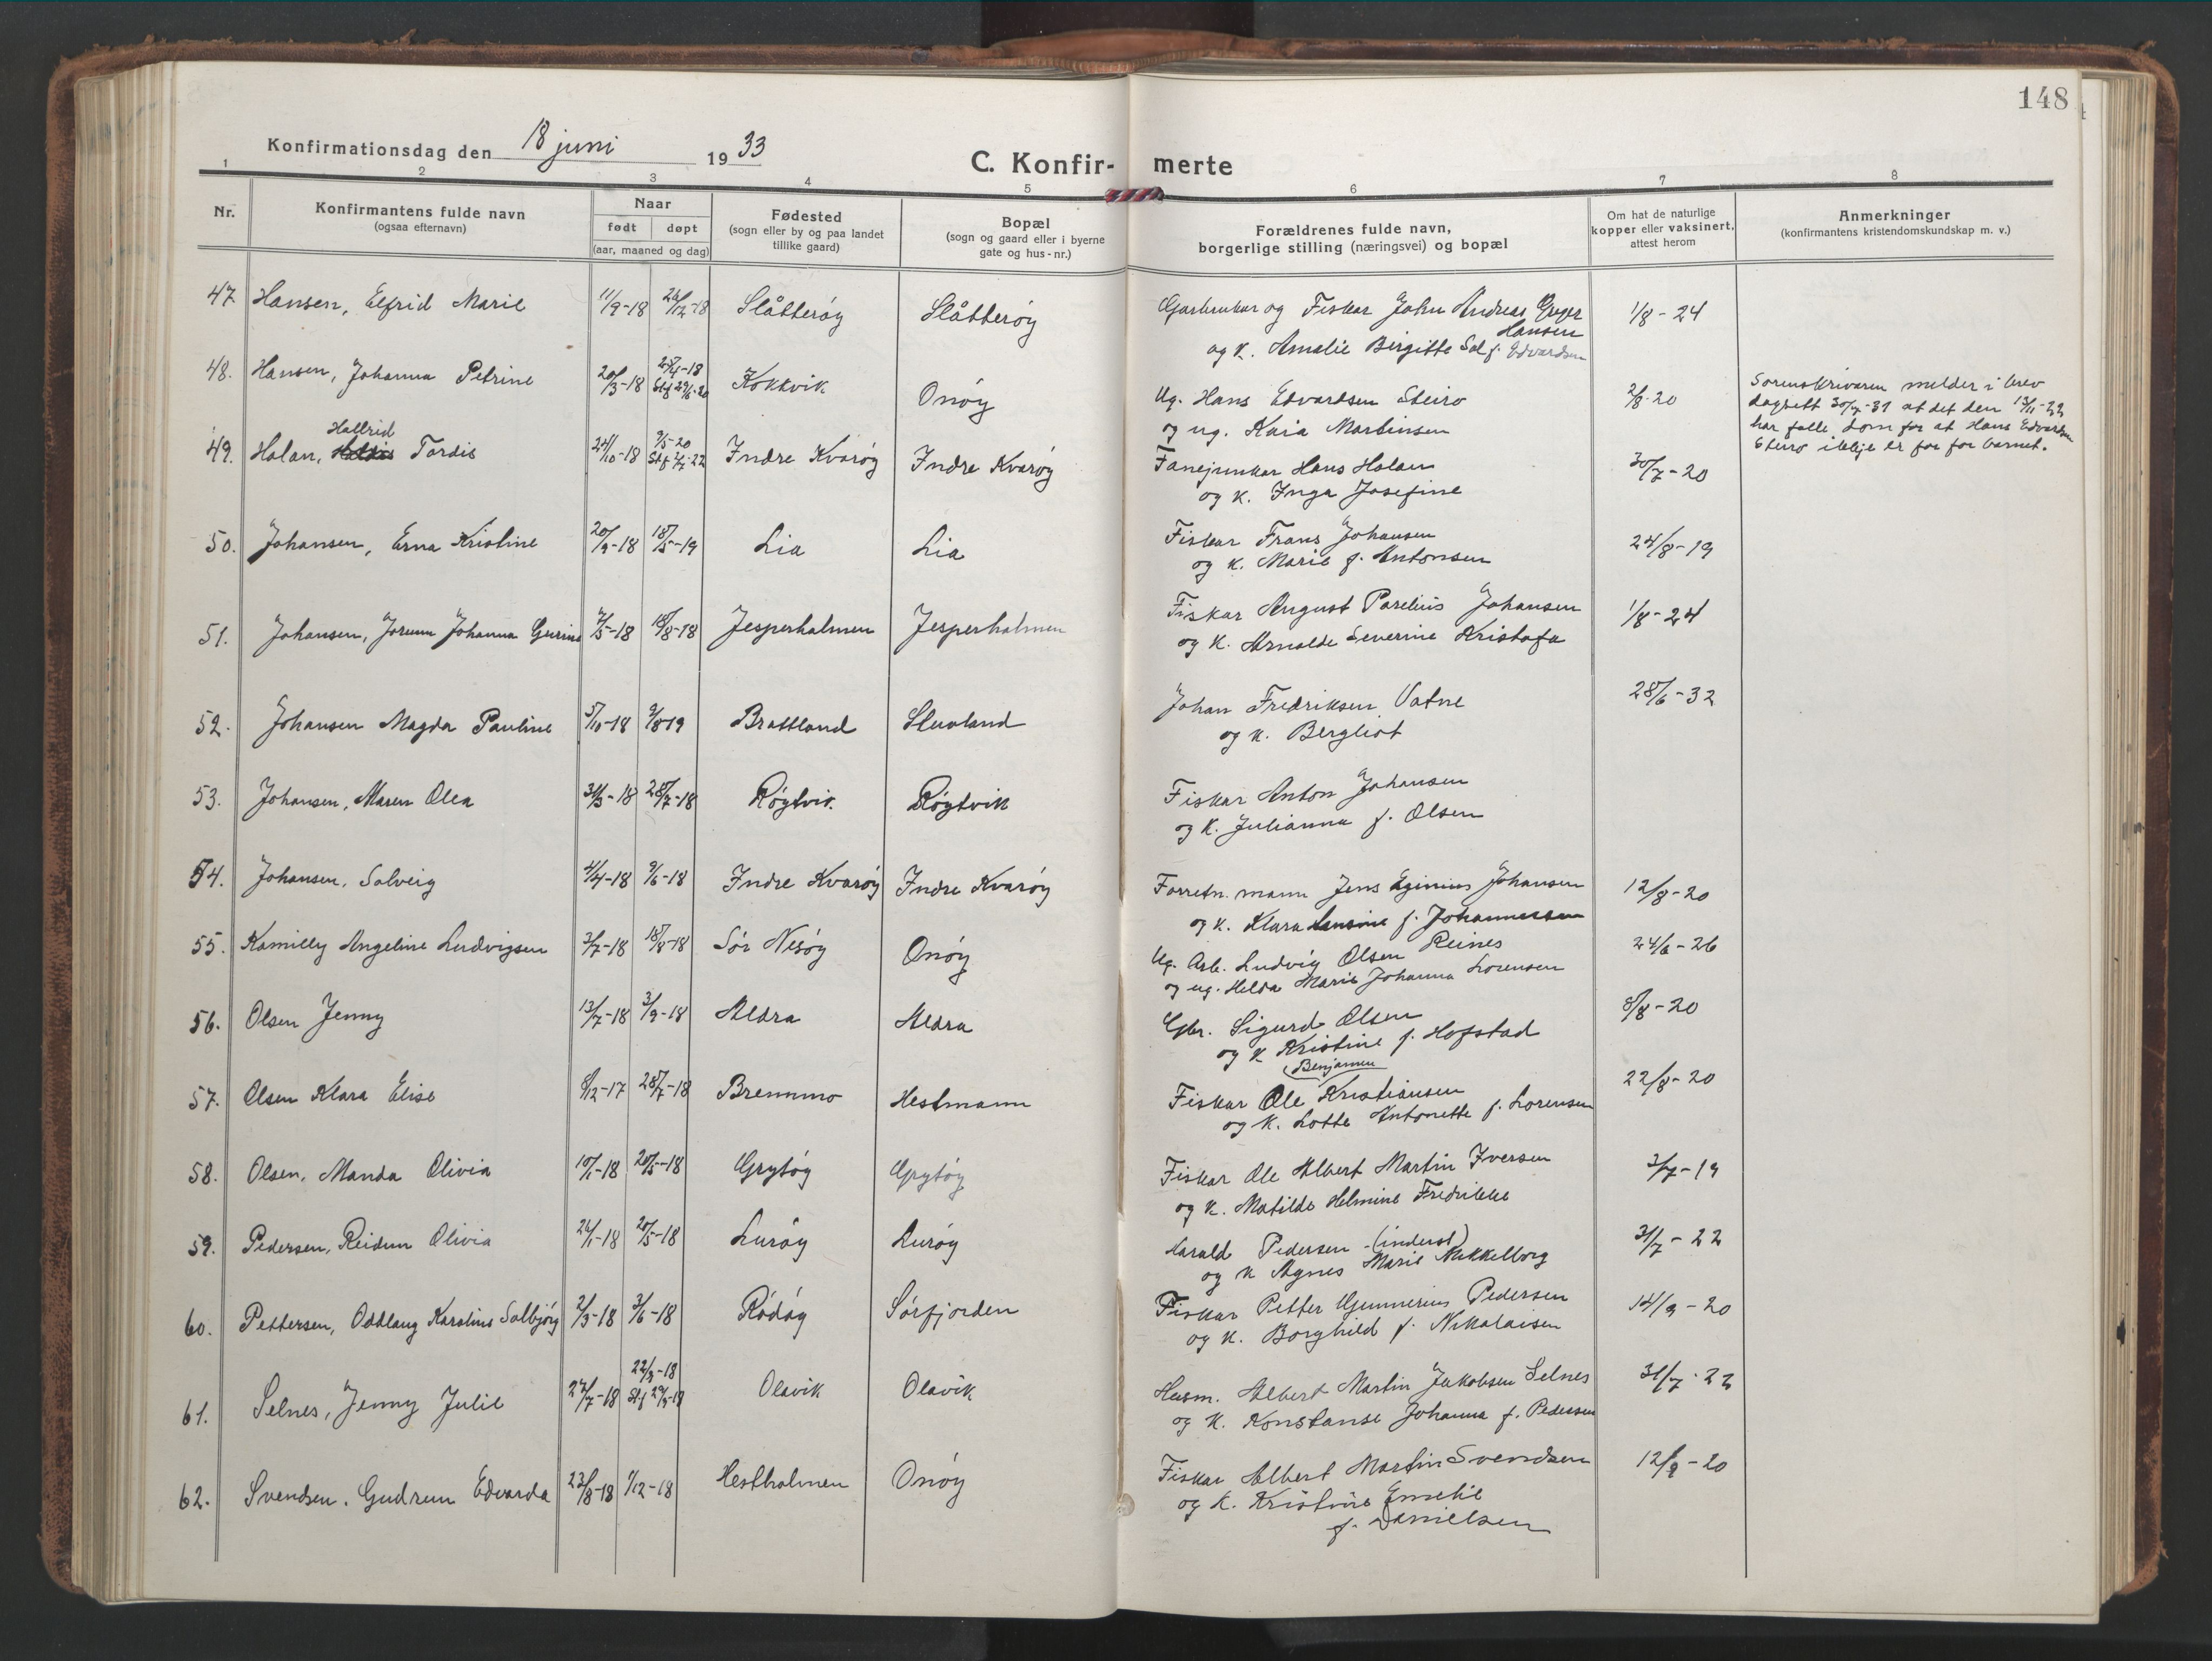 148
Konfirmationsdag den 18 juni 1933
C. Konfirmerte
1 2 3 4 5 6 7 8
Nr.
Konfirmantens fulde navn
(ogsaa efternavn)
Naar
født døpt
(aar, maaned og dag)
Fødested
(sogn eller by og paa landet
tillike gaard)
Bopæl
(sogn og gaard eller i byerne
gate og hus-nr.)
Forældrenes fulde navn,
borgerlige stilling (næringsvei) og bopæl
Om hat de naturlige
kopper eller vaksinert,
attest herom
Anmerkninger
(konfirmantens kristendomskundskap m. v.)
47. Hansen, Elfrid Marie 11/9-18 26/12-18 Slåtterøy Slåtterøy Garbrukar og Fiskar John Andreas Greger 1/8-24
Hansen
og k. Amalie Birgitte Sol f. Edvardsen
48. Hansen, Johanna Petrine 20/3-18 25/4-18 Kokkvik Onøy Ug. Hans Edvardsen Steiro 2/8-20
og ug. Kaia Martinsen
Sorenskrivaren melder i brev
dagsett 30/7-31 at det den 13/11-22
har falle dom for at Hans Edvardsen
Steiro ikkje er far for barnet.
49. Holan, Hallrid Tordis 24/10-18 9/5-20 Indre Kvarøy Indre Kvarøy Fanejunkar Hans Holan 30/7-20
og k. Inga Josefine
50. Johansen, Erna Kristine 20/9-18 18/5-19 Lia Lia Fiskar Frans Johansen 24/8-19
og k. Marie f. Antonsen
51. Johansen, Jorunn Johanna Gurine 7/5-18 18/8-18 Jesperholmen Jesperholmen Fiskar August Parelius Johansen 1/8-24
og k. Arnolde Severine Kristofa
52. Johansen Magda Pauline 5/10-18 9/8-19 Brattland Stuvland Johan Fredriksen Vatne 28/6-32
og k. Bergliot
53. Johansen, Maren Olea 31/3-18 28/7-18 Røytvik Røytvik Fiskar Anton Johansen
og k. Julianna f. Olsen
54. Johansen, Solveig 4/4-18 9/6-18 Indre Kvarøy Indre Kvarøy Forretn.mann Jens Eginius Johansen 12/8-20
og k. Klara Hansine f. Johannessen
55. Kamilly Angeline Ludvigsen 3/7-18 18/8-18 Sør Nesøy Onøy Ug. Arb. Ludvig Olsen Reines 24/6-26
og ug. Helda Marie Johanna Lorensen
56. Olsen Jenny 13/7-18 3/9-18 Aldra Aldra Gbr. Sigurd Olsen 8/8-20
og k Kristine f. Hofstad
57. Olsen Klara Elise 8/12-17 28/7-18 Brennmo Hestmann Fiskar Ole Benjamin Kristiansen 22/8-20
og k. Lotte Antonette f. Lorensen
58. Olsen, Manda Olivia 10/1-18 20/5-18 Grytøy Grytøy Fiskar Ole Albert Martin Iversen 3/7-19
og k. Matilde Helmine Fredrikke
59. Pedersen, Reidun Olivia 26/1-18 20/5-18 Lurøy Lurøy Harald Pedersen (inderst) 31/7-22
og k Agnes Marie Mikkelborg
60. Pettersen, Oddlaug Karoline Solbjørg 2/3-18 3/6-18 Rødøy Sørfjorden Fiskar Petter Gunnerius Pedersen 14/9-20
og k. Borghild f. Nikolaisen
61. Selnes, Jenny Julie 27/7-18 22/9-18 Olavik Olavik Husm. Albert Martin Jakobsen Selnes 31/7-22
og k. Konstanse Johanna f. Pedersen
62. Svendsen, Gudrun Edvarda 23/8-18 1/12-18 Hestholmen Onøy Fiskar Albert Martin Svendsen 12/8-20
og k. Kristine Emelie
f. Danielsen